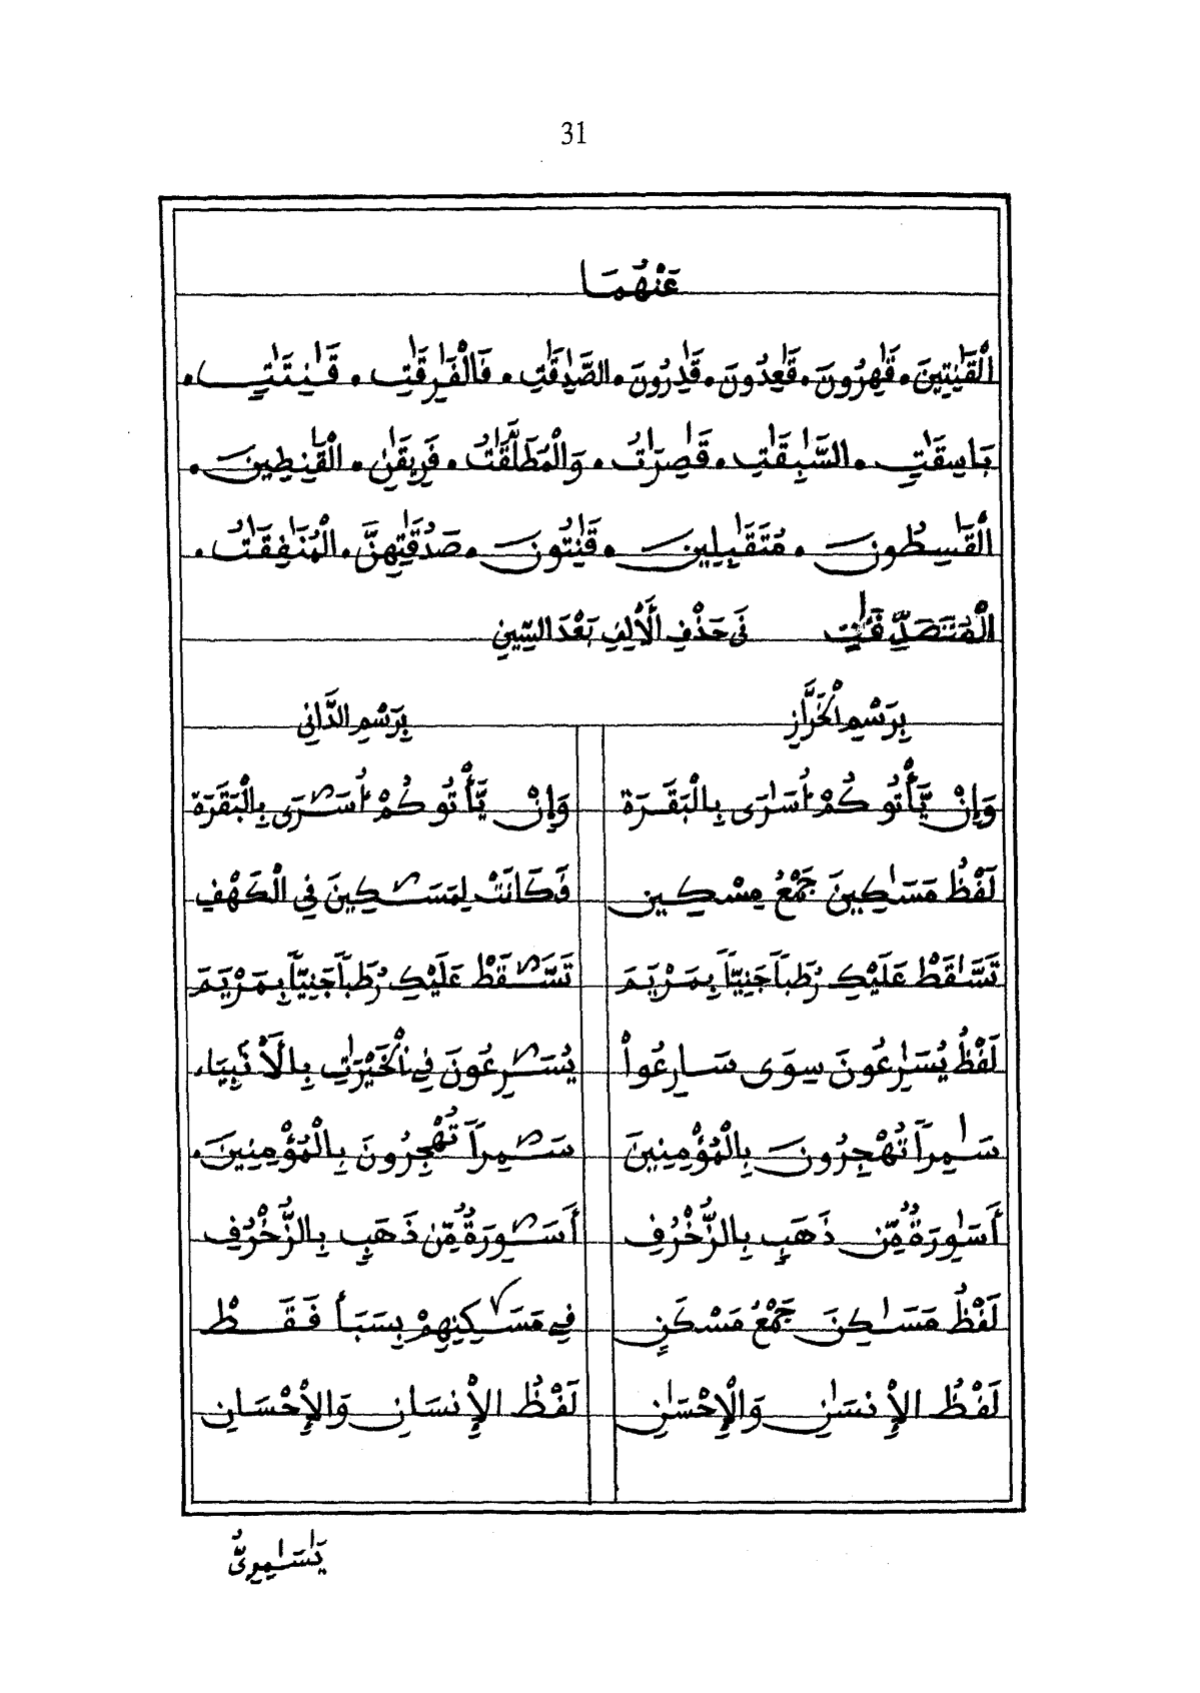 31
عَنْهُمَا
اَلْقَٰنِتِينَ . قَٰهِرُونَ . قَٰعِدُونَ . قَٰدِرُونَ . الصَّٰدِقَٰتِ . فَالْفَٰرِقَٰتِ . قَٰنِتَٰتٍ .
بَاسِقَٰتٍ . السَّٰبِقَٰتِ . قَٰصِرَٰتُ . وَالْمُطَلَّقَٰتُ . فَرِيقَٰنِ . الْقَٰنِطِينَ .
اَلْقَٰسِطُونَ . مُتَقَٰبِلِينَ . قَٰنِتُونَ . صَدُقَٰتِهِنَّ . الْمُنَٰفِقَٰتُ .
الْمُتَصَدِّقَٰتِ فِى حَذْفِ الْأَلِفِ بَعْدَ السِّينِ
بِرَسْمِ الْخَرَّازِ بِرَسْمِ الدَّانِي
وَإِنْ يَّأْتُوكُمْ أُسَٰرَى بِالْبَقَرَة وَإِنْ يَّأْتُوكُمْ أُسَٰرَى بِالْبَقَرَة
لَفْظُ مَسَٰكِينَ جَمْعُ مِسْكِين فَكَانَتْ لِمَسَٰكِينَ فِي الْكَهْفِ
تَسَّٰقَطْ عَلَيْكِ رُطَباً جَنِيّاً بِمَرْيَمَ تَسَّٰقَطْ عَلَيْكِ رُطَباً جَنِيّاً بِمَرْيَمَ
لَفْظُ يُسَٰرِعُونَ سِوَى سَارِعُواْ يُسَٰرِعُونَ فِي الْخَيْرَٰتِ بِالْأَنْبِيَاء
سَٰمِراً تُهْجِرُونَ بِالْمُؤْمِنِينَ سَٰمِراً تُهْجِرُونَ بِالْمُؤْمِنِينَ .
أَسَٰوِرَةٌ مِّن ذَهَبٍ بِالزُّخْرُفِ أَسَٰوِرَةٌ مِّن ذَهَبٍ بِالزُّخْرُفِ
لَفْظُ مَسَٰكِنَ جَمْعُ مَسْكَنٍ فِي مَسَٰكِنِهِمْ بِسَبَأ فَقَطْ
لَفْظُ الْإِنسَٰنِ وَالْإِحْسَٰنِ لَفْظُ الْإِنسَانِ وَالْإِحْسَانِ